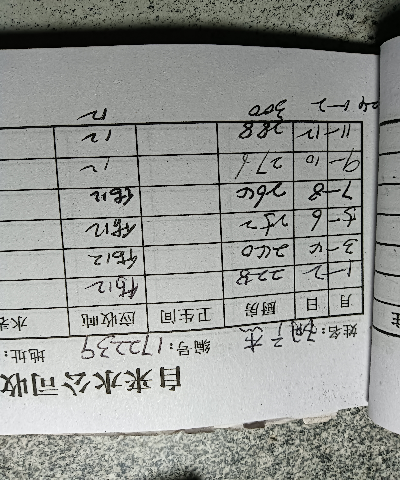 自来水公司收
姓名: 编号:172239 地址:
月 日 厨房 卫生间 应收吨 水
1-2 228 估12
3-4 240 估12
5-6 252 估12
7-8 264 估12
9-10 276 12
11-12 288 12
24 1-2 300 12